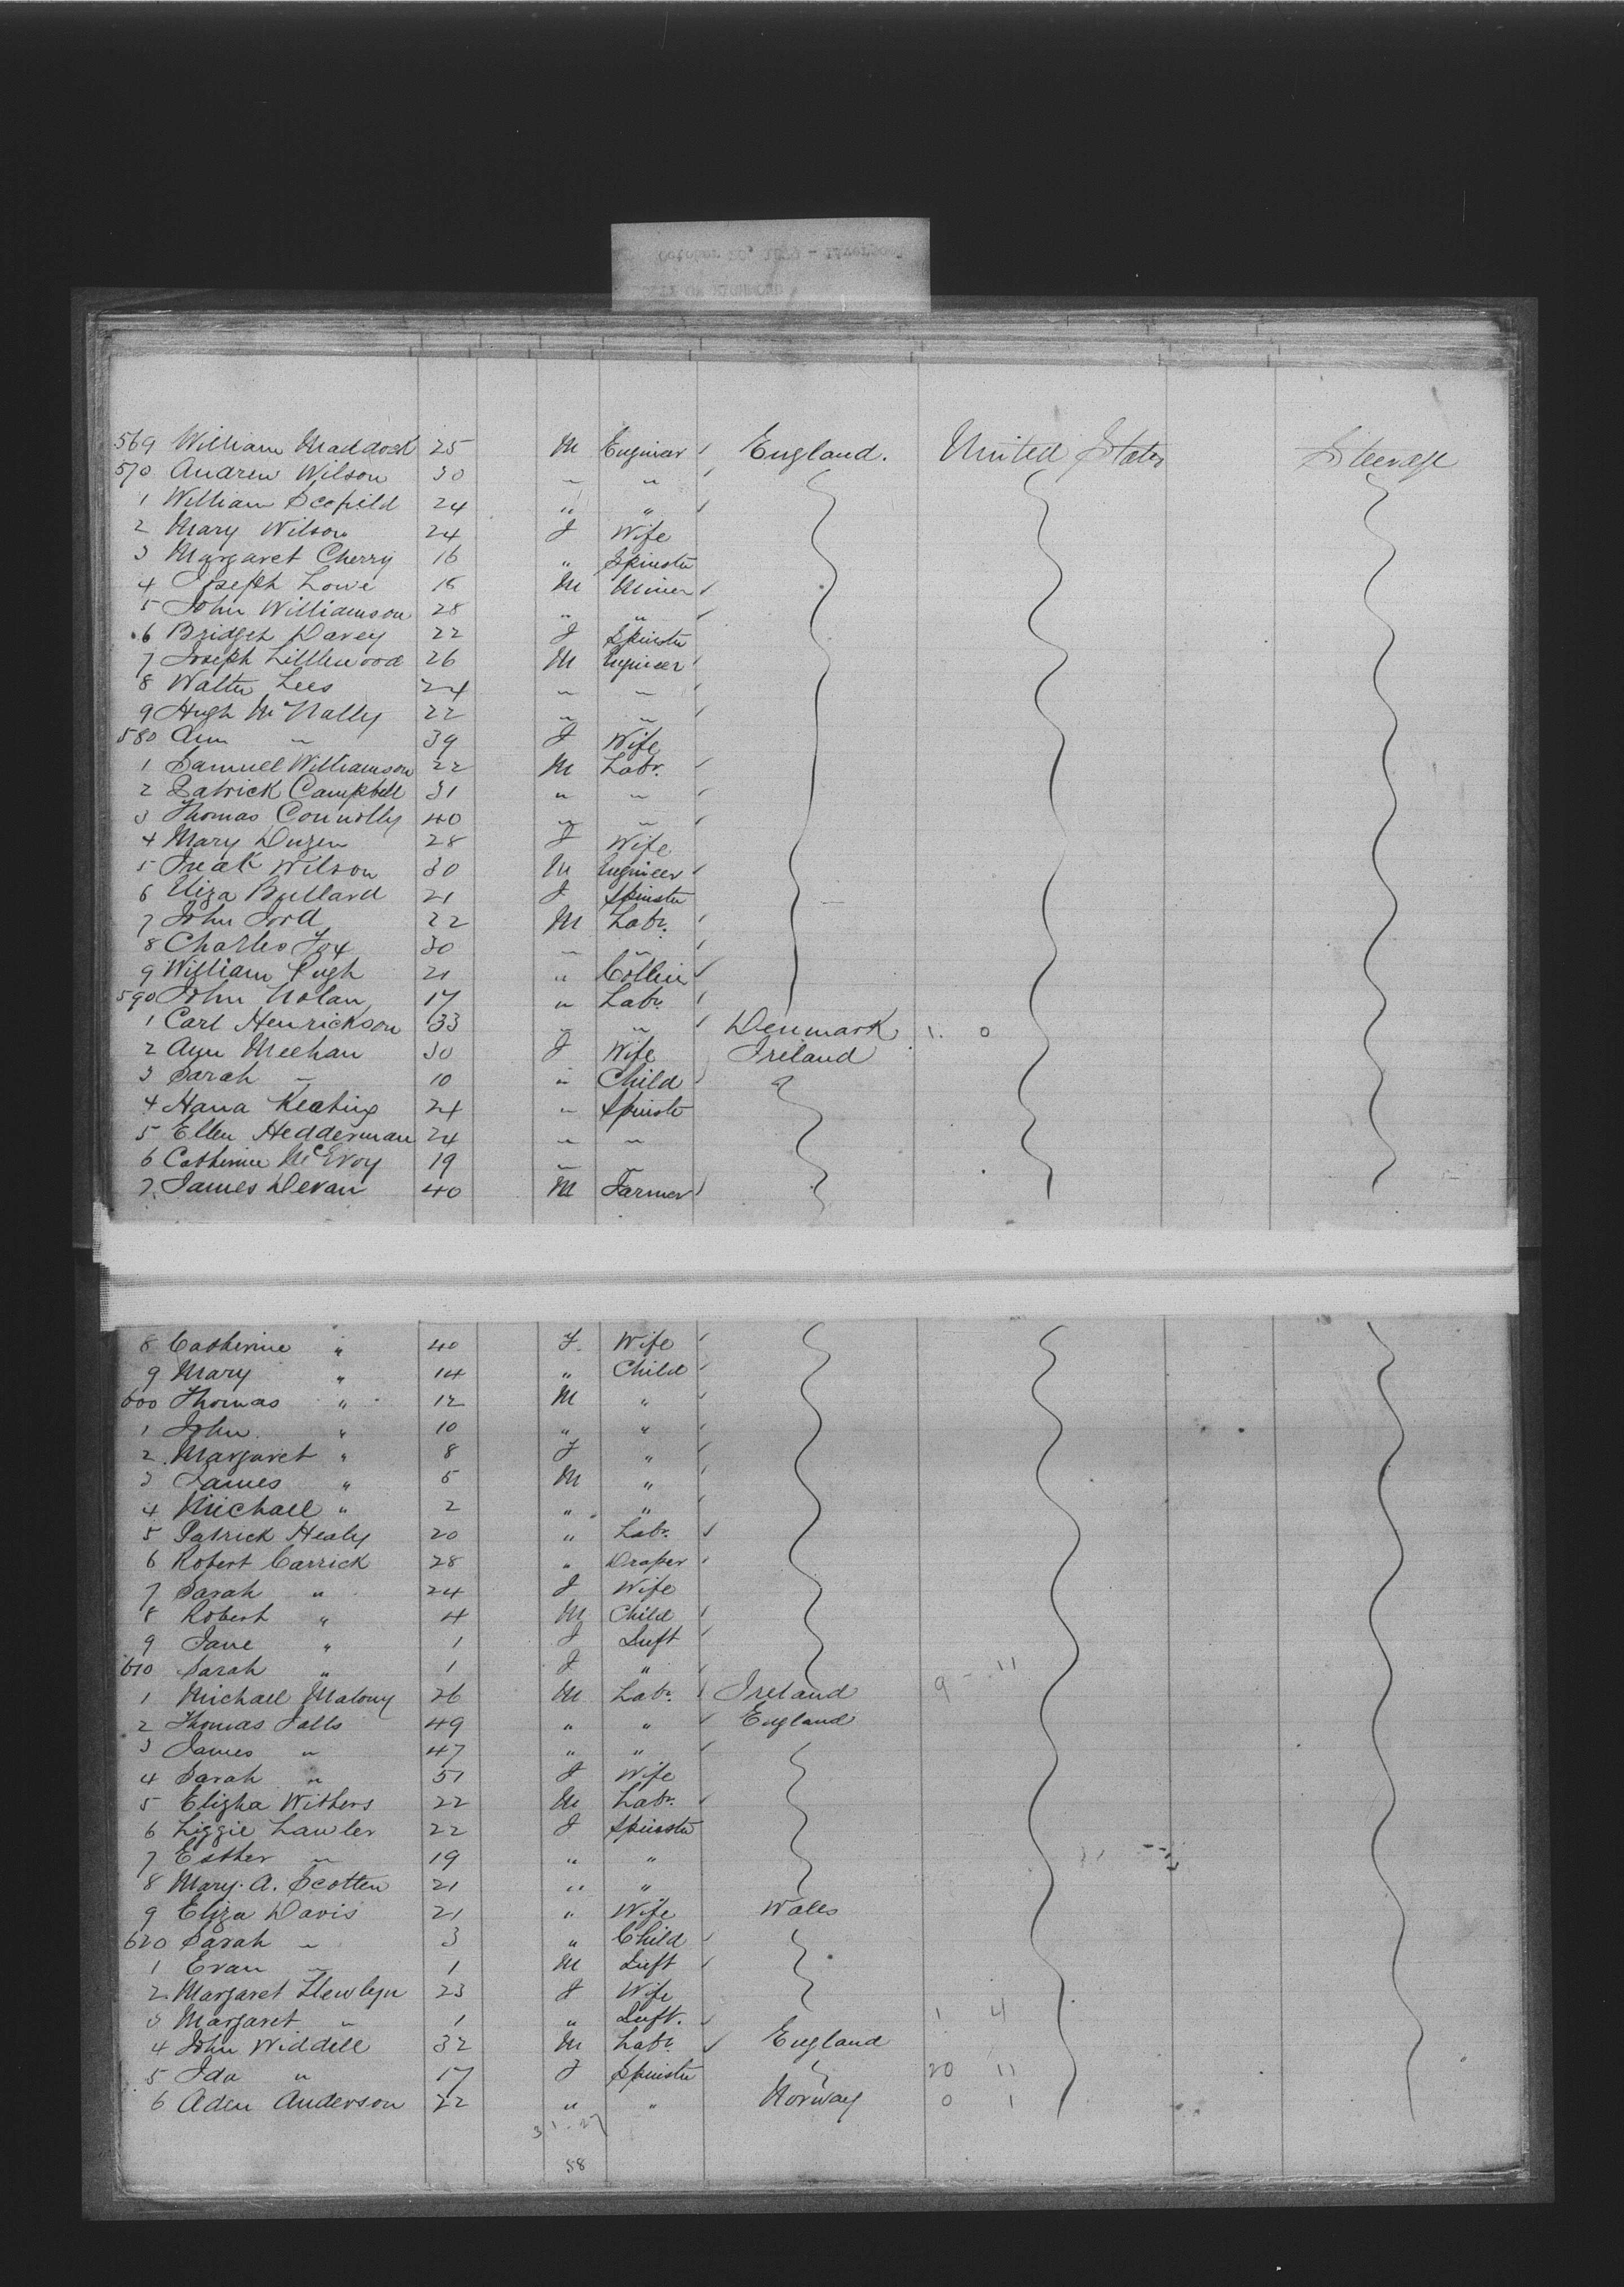 569 William Maddock 25 M Engineer England. United States Steerage
570 Andrew Wilson 30 " "
1 William Scofield 24 " "
2 Mary Wilson 24 F Wife
3 Margaret Cherry 16 " Spinster
4 Joseph Lowe 18 M Miner
5 John Williamson 28 " "
6 Bridget Davey 22 F Spinster
7 Joseph Littlewood 26 M Engineer
8 Walter Lees 24 " "
9 Hugh McNally 22 " "
580 Ann " 39 F Wife
1 Samuel Williamson 22 M Labr.
2 Patrick Campbell 31 " "
3 Thomas Connolly 40 " "
4 Mary 28 F Wife
5 Wilson 30 M Engineer
6 Eliza Bullard 21 F Spinster
7 John Ford 22 M Labr.
8 Charles Fox 30 " "
9 William Pugh 21 " Collier
590 John Nolan 17 " Labr.
1 Carl Henrickson 33 " " Denmark 1. 0
2 Ann Meehan 30 F Wife Ireland
3 Sarah " 10 " Child
4 Hana Keating 24 " Spinster
5 Ellen Hedderman 24 " "
6 Catherine McEvoy 19 "
7 James Devan 40 M Farmer
8 Catherine " 40 F. Wife
9 Mary " 14 " Child
600 Thomas " 12 M "
1 John " 10 " "
2 Margaret " 8 F "
3 James " 5 M "
4 Michael " 2 " "
5 Patrick Healy 20 " Labr.
6 Robert Carrick 28 " Draper
7 Sarah " 24 F Wife
8 Robert " 4 M Child
9 Jane " 1 F Inft
610 Sarah " 1 F "
1 Michael Malony 26 M Labr. Ireland 9 - 11
2 Thomas Falls 49 " " England
3 James " 47 " "
4 Sarah " 51 F Wife
5 Elisha Withers 22 M Labr.
6 Lizzie Lawler 22 F Spinster
7 Esther " 19 " "
8 Mary. A. Scotten 21 " "
9 Eliza Davis 21 " Wife Wales
620 Sarah " 3 " Child
1 Evan " 1 M Inft
2 Margaret Llewlyn 23 F Wife
3 Margaret " 1 " Inft. 1 4
4 John Widdell 32 M Labr. England
5 Ida " 17 F Spinster 20 11
6 Aden Anderson 22 " " Norway 0 1
31-27
58